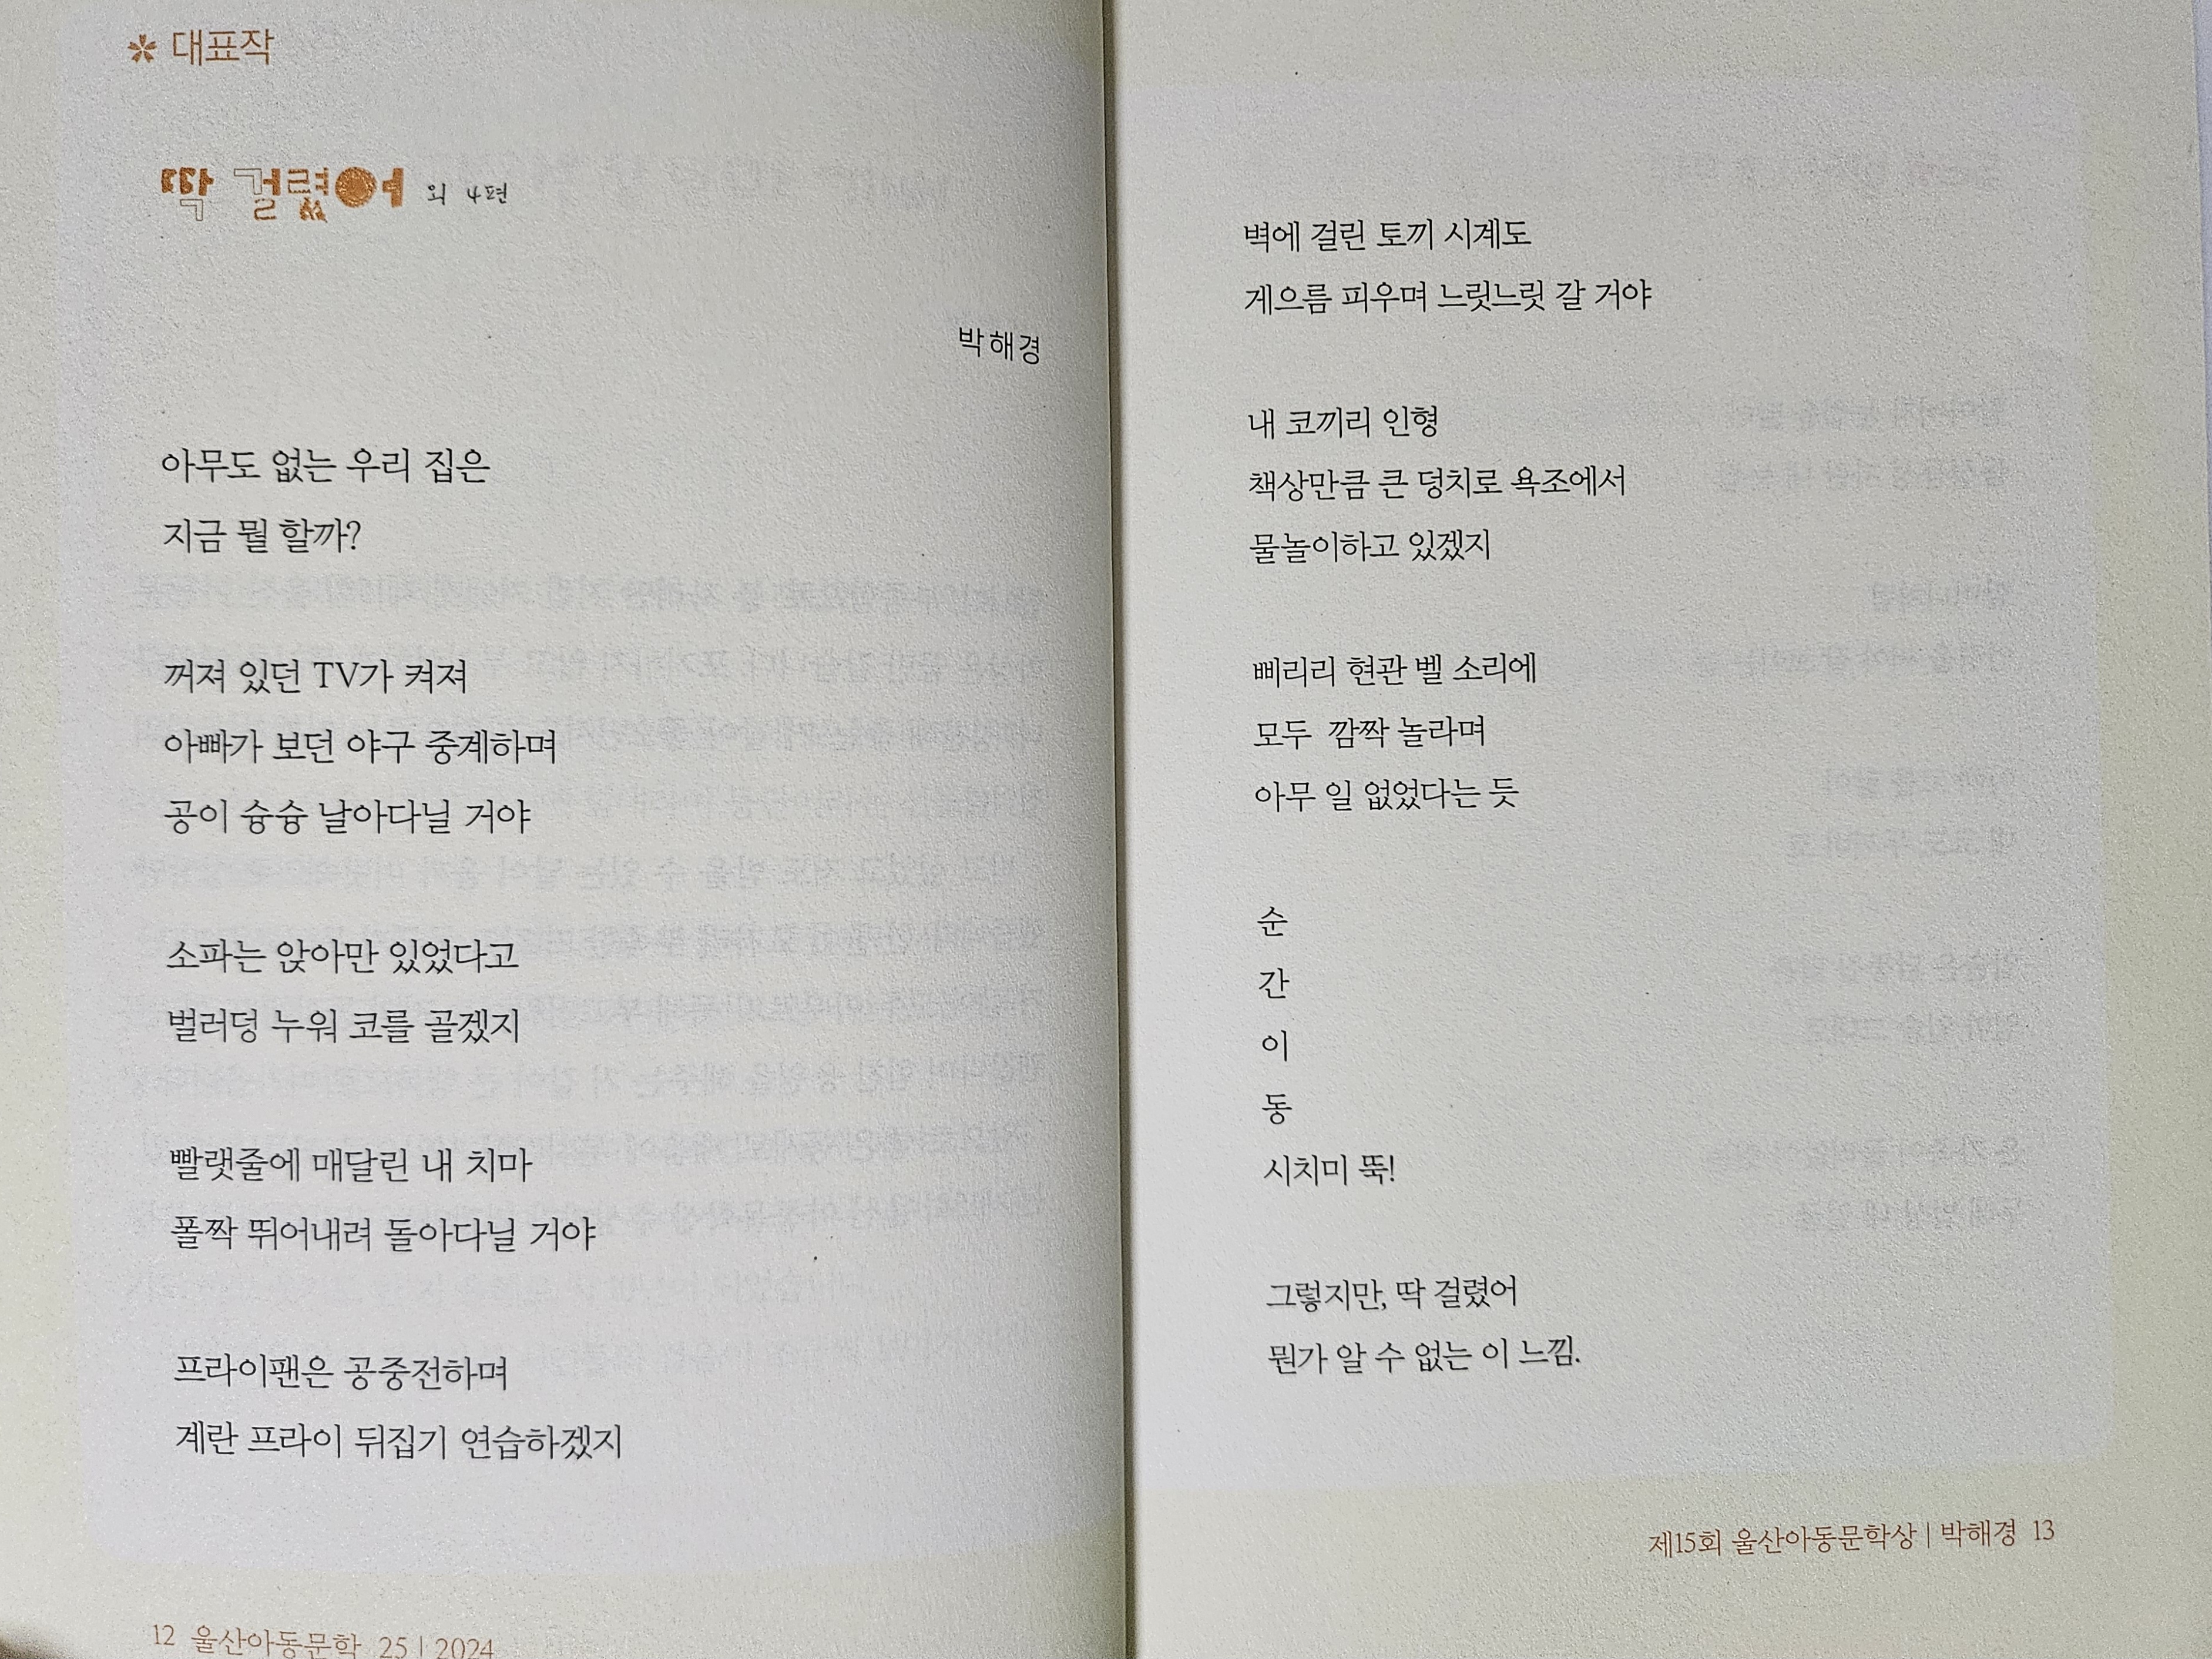 대표작
딱 걸렸어 외 4편
박해경
아무도 없는 우리 집은
지금 뭘 할까?
꺼져 있던 TV가 켜져
아빠가 보던 야구 중계하며
공이 슝슝 날아다닐 거야
소파는 앉아만 있었다고
벌러덩 누워 코를 골겠지
빨랫줄에 매달린 내 치마
폴짝 뛰어내려 돌아다닐 거야
프라이팬은 공중전하며
계란 프라이 뒤집기 연습하겠지
12 울산아동문학 25 | 2024
벽에 걸린 토끼 시계도
게으름 피우며 느릿느릿 갈 거야
내 코끼리 인형
책상만큼 큰 덩치로 욕조에서
물놀이하고 있겠지
삐리리 현관 벨 소리에
모두 깜짝 놀라며
아무 일 없었다는 듯
순
간
이
동
시치미 뚝!
그렇지만, 딱 걸렸어
뭔가 알 수 없는 이 느낌.
제15회 울산아동문학상 | 박해경 13